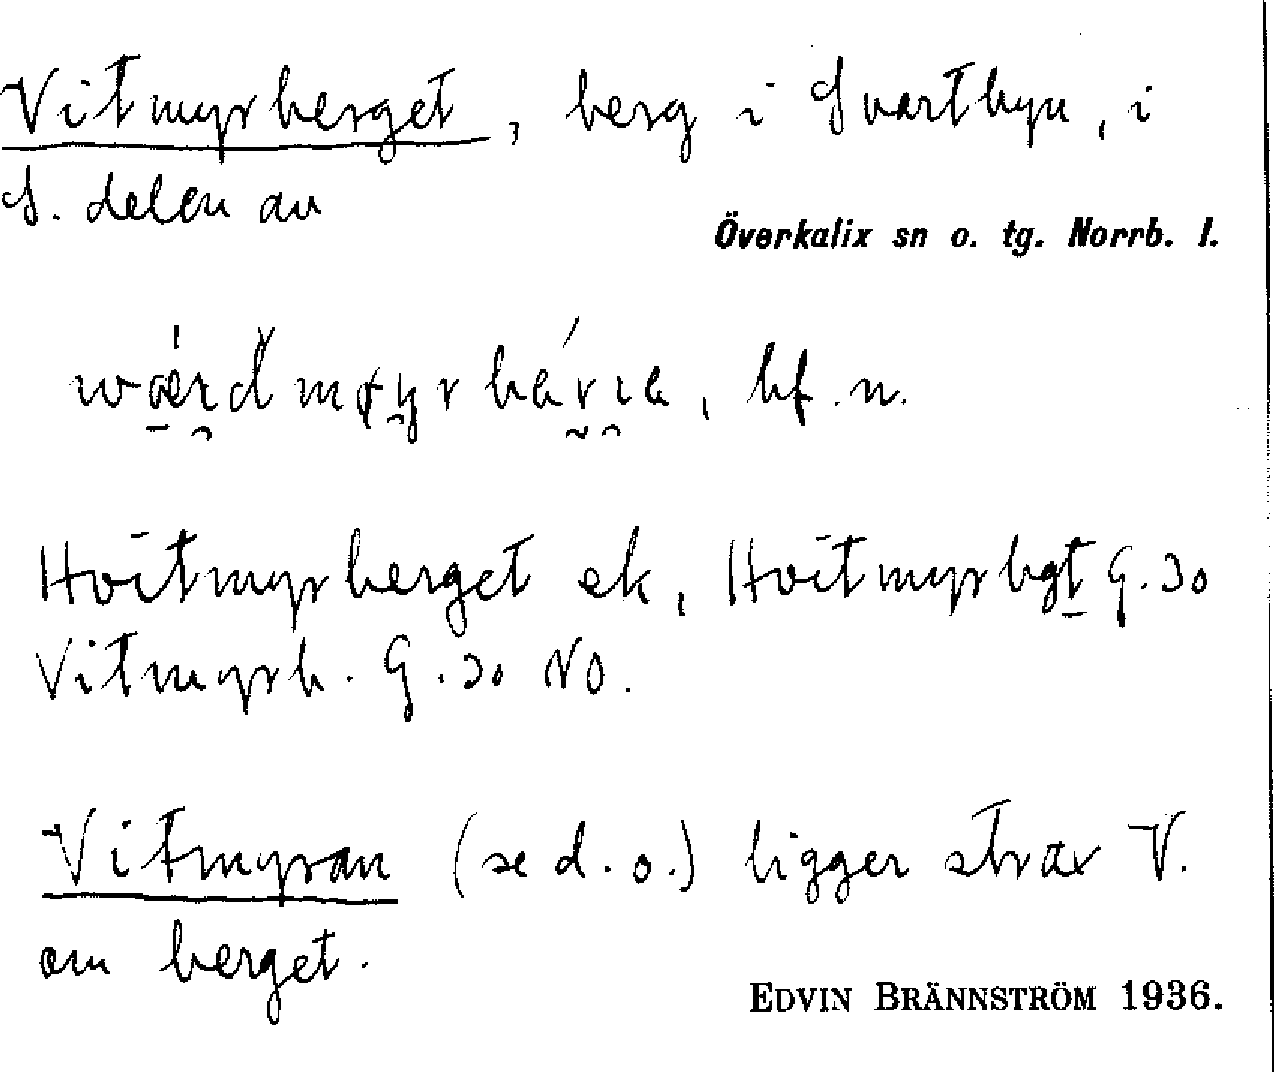 Vitmyrberget, berg i Svartbyn, i
S. delen av
Överkalix sn o. tg. Norrb. l.
bf. n.
Hvitmyrberget ek, Hvitmyrbgt G. 30
Vitmyrb. G. 30 NO.
Vitmyran (se d. o.) ligger strax V.
om berget.
EDVIN BRÄNNSTRÖM 1936.